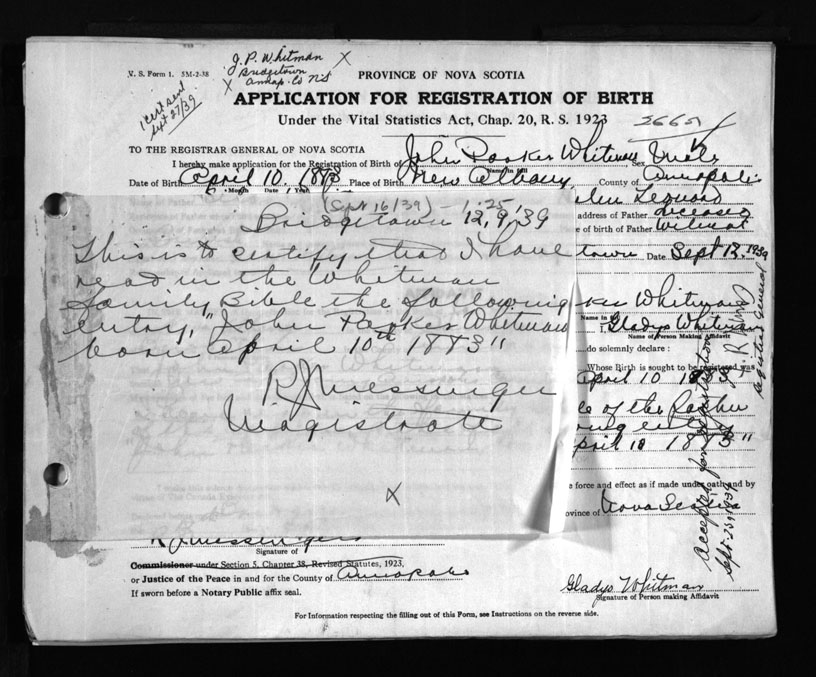 V. S. Form 1. 5M-2-38
J. P. Whitman X
Bridgetown
X Annap. Co N S
1 cert sent
Sept 27/39
PROVINCE OF NOVA SCOTIA
APPLICATION FOR REGISTRATION OF BIRTH
Under the Vital Statistics Act, Chap. 20, R. S. 1923
TO THE REGISTRAR GENERAL OF NOVA SCOTIA
I hereby make application for the Registration of Birth of John Parker Whitman Sex Male
Name in full
Date of Birth April 10, 1883 Place of Birth New Albany County of Annapolis
Month Date Year
(Sept 16/39) - 1.25
Bridgetown 12, 9, '39
This is to certify that I have
read in the Whitman
family Bible the following
entry, "John Parker Whitman
born April 10th 1883"
R J Messinger
Magistrate
X
Leonard
address of Father deceased
of birth of Father Wilmot
town Date Sept 12, 1939
ker Whitman
Name in
I, Gladys Whitman
Name of Person Making Affidavit
do solemnly declare :
Whose Birth is sought to be registered was
April 10 1883
le of the Parker
ing entry
pril 10 1883"
e force and effect as if made under oath and by
ovince of Nova Scotia
Accepted for registration
Sept. 29, 1939
Registrar General
R J Messinger
Signature of
Commissioner under Section 5, Chapter 38, Revised Statutes, 1923,
or Justice of the Peace in and for the County of Annapolis
If sworn before a Notary Public affix seal.
Gladys Whitman
Signature of Person making Affidavit
For Information respecting the filling out of this Form, see Instructions on the reverse side.